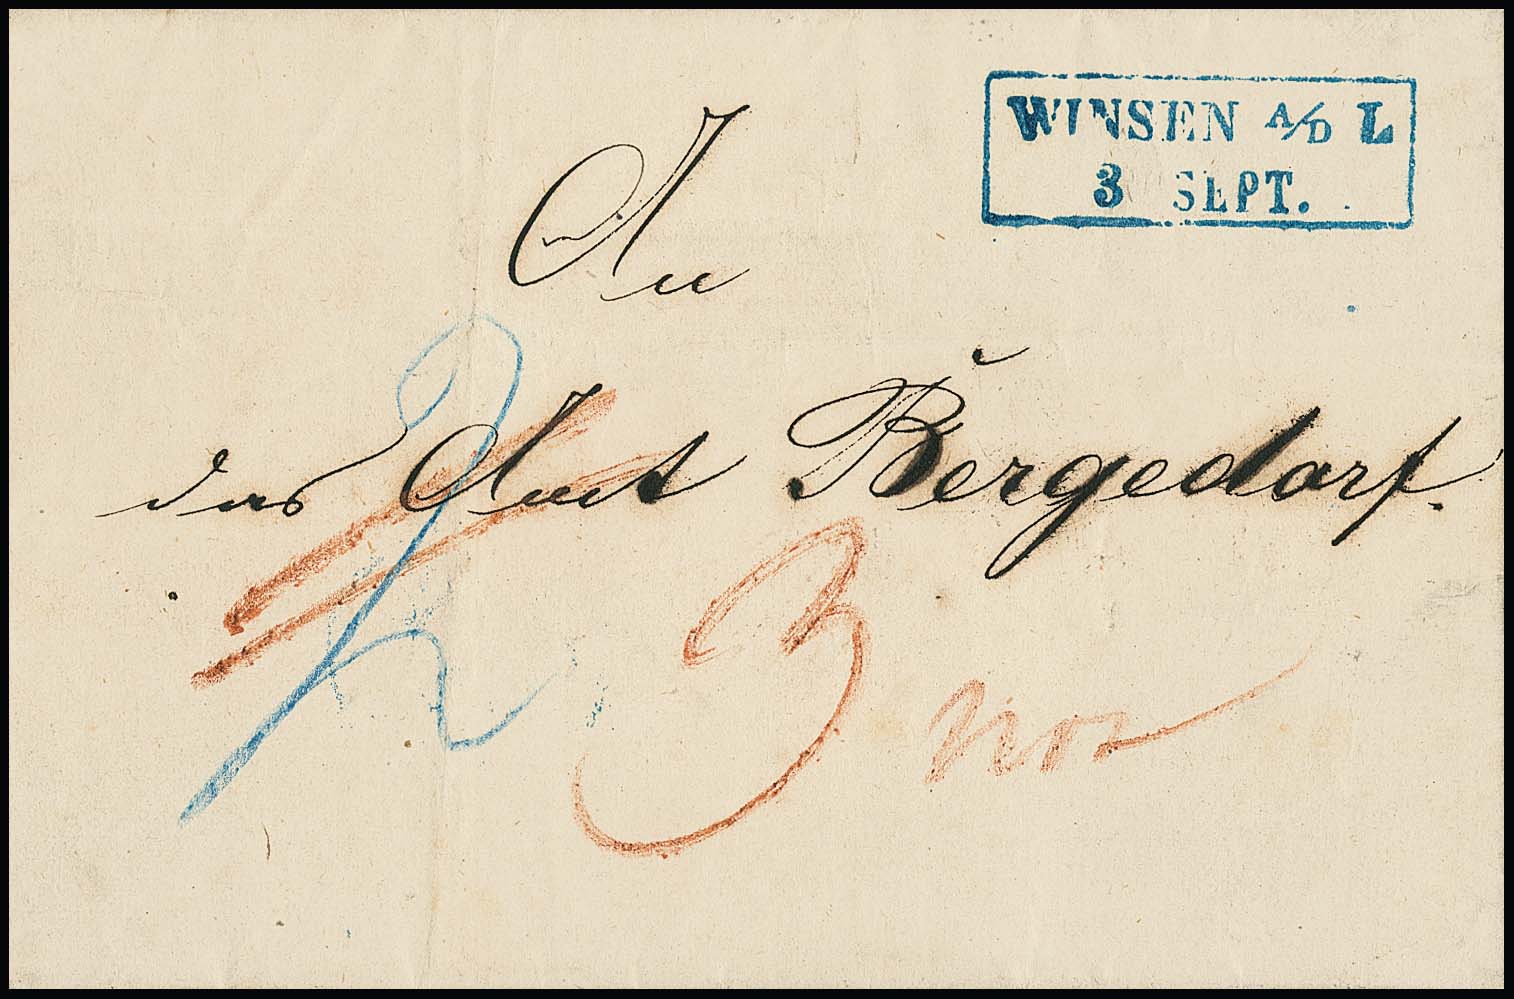 WINSEN A/D L
3 SEPT.
An
das Amt Bergedorf.
3